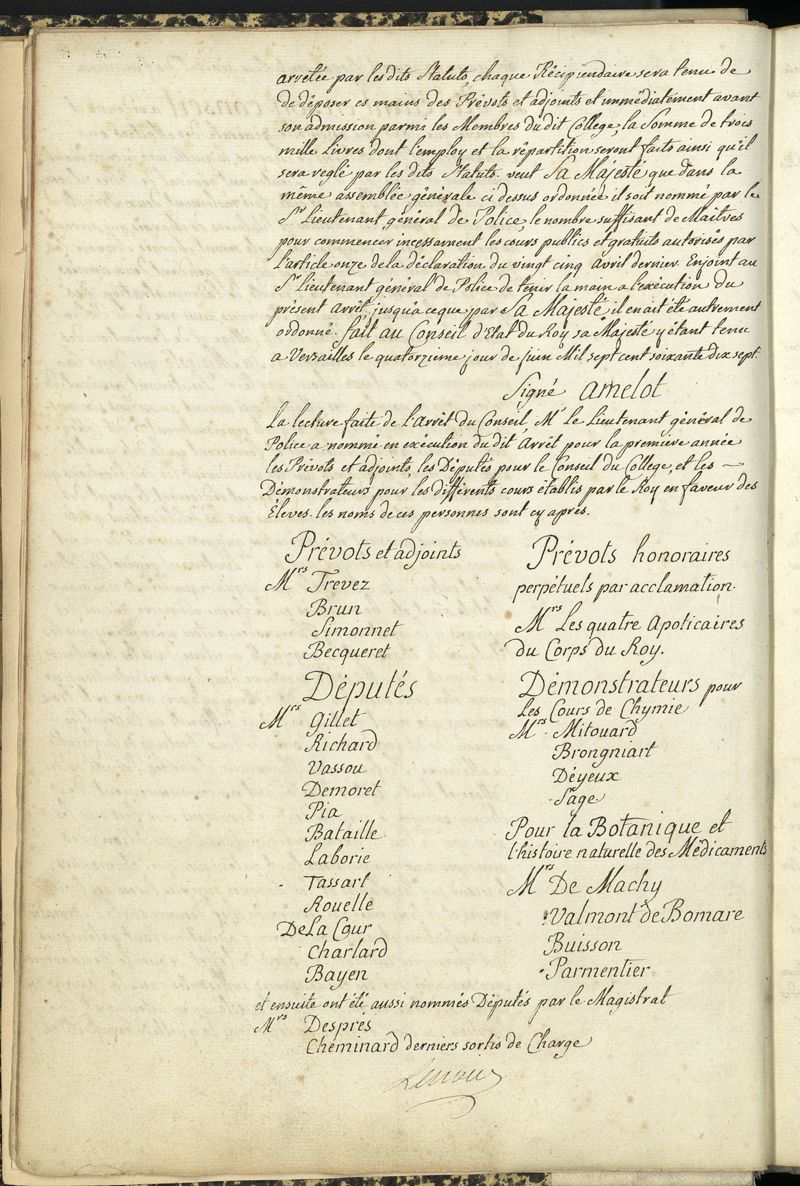 arretée par les dits Statuts, chaque Récipiendaire sera tenu de
de déposer es mains des Prévots et adjoints et immédiatement avant
son admission parmi les Membres du dit College, la Somme de trois
mille Livres dont l'employ et la répartition seront faits ainsi qu'il
sera reglé par les dits Statuts. veut Sa Majesté que dans la
même assemblée générale ci dessus ordonnée il soit nommé par le
Sr Lieutenant général de Police, le nombre suffisant de Maitres
pour commencer incessament les cours publics et gratuits autorisés par
l'article onze de la déclaration du vingt cinq avril dernier. Enjoint au
Sr Lieutenant général de Police de tenir la main a l'exécution du
présent arrêt, jusqu'a ce que par Sa Majesté il en ait été autrement
ordonné. fait au Conseil d'Etat du Roy sa Majesté y étant tenu
a Versailles le quatorzieme jour de Juin Mil sept cent soixante dix sept.
Signé amelot
La lecture faite de l'arrêt du Conseil, Mr le Lieutenant général de
Police a nommé en exécution du dit Arrêt pour la première année
les Prévots et adjoints, les Députés pour le Conseil du College, et les
Démonstrateurs pour les différents cours établis par le Roy en faveur des
Éleves. les noms de ces personnes sont cy après.
Prévots et adjoints
Mrs Trevez
Brun
Simonnet
Becqueret
Députés
Mrs Gillet
Richard
Vassou
Demoret
Pia
Bataille
Laborie
Tassart
Rouelle
De La Cour
Charlard
Bayen
Prévots honoraires
perpétuels par acclamation.
Mrs Les quatre Apoticaires
du Corps du Roy.
Démonstrateurs pour
les Cours de Chymie
Mrs Mitouard
Brongniart
Déyeux
Sage
Pour la Botanique et
l'histoire naturelle des Médicaments
Mrs De Machy
Valmont de Bomare
Buisson
Parmentier
et ensuite ont été aussi nommés Députés par le Magistrat
Mrs Desprès
Cheminard derniers sortis de Charge
Lenoir